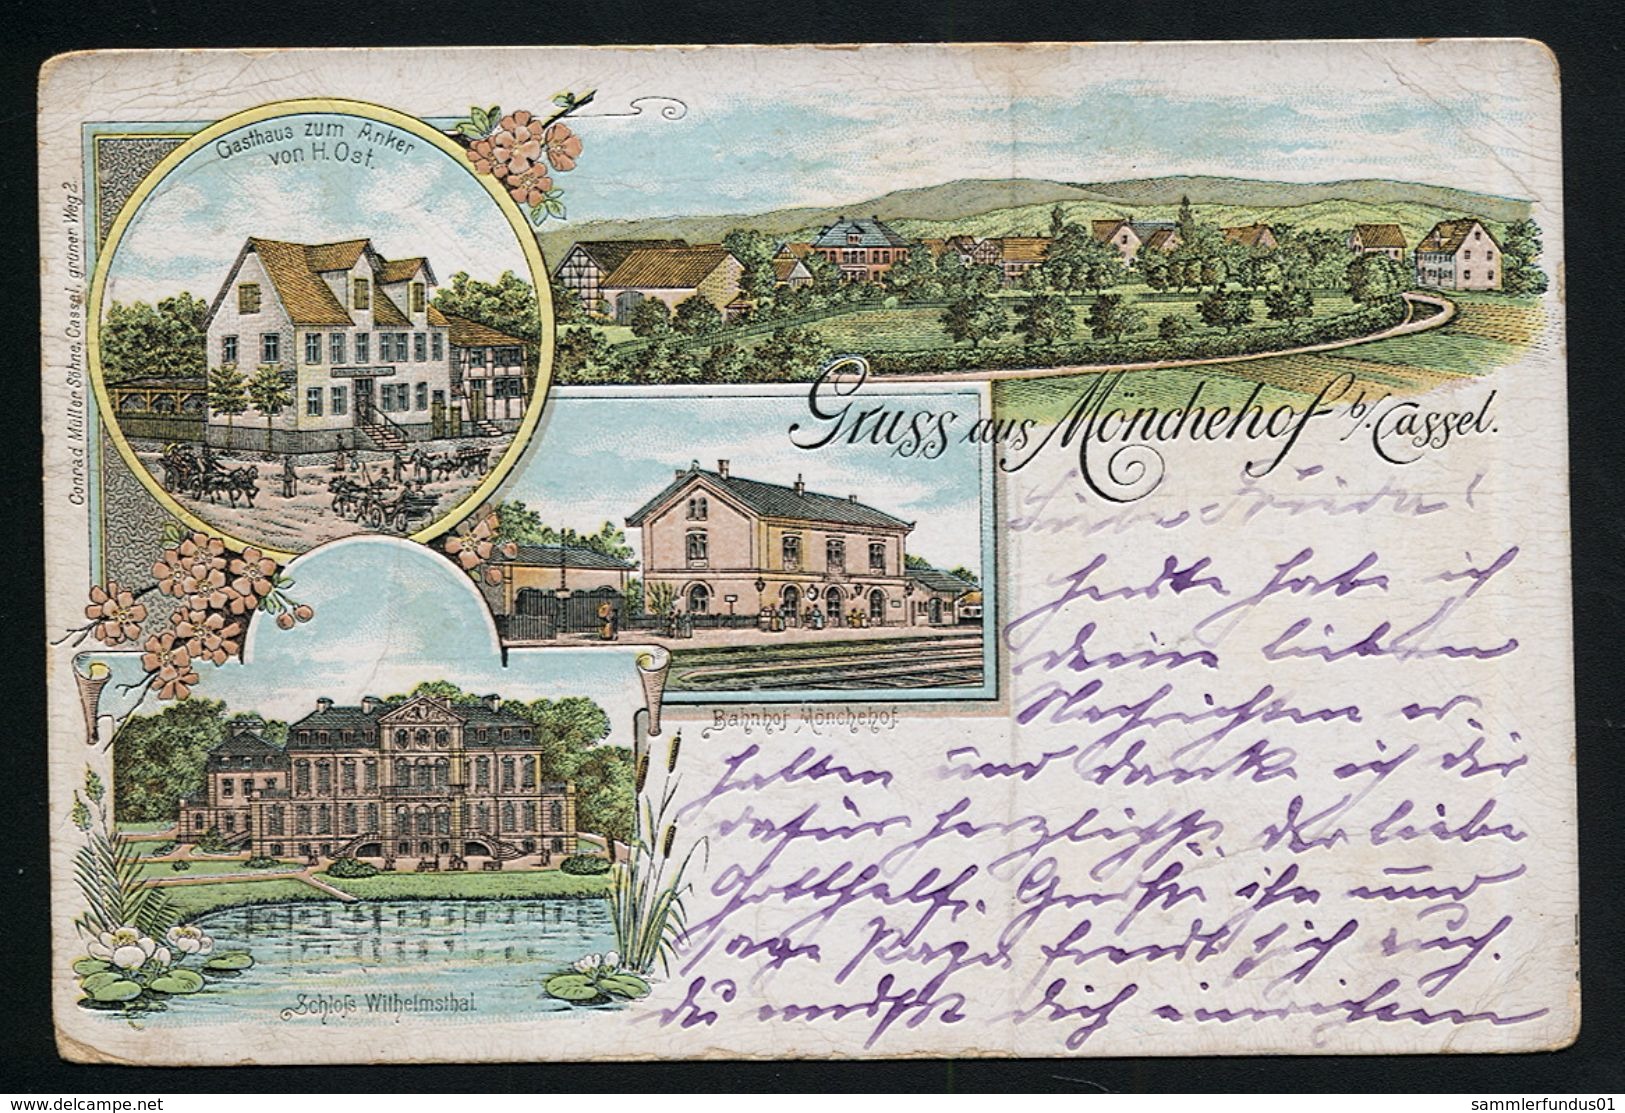 Gasthaus zum Anker
von H. Ost.
Conrad Müller Söhne, Cassel, grüner Weg 2.
Gruss aus Mönchehof b/Cassel.
Bahnhof Mönchehof.
Schloſs Wilhelmsthal.
Liebe Frieda!
habe ich
deine lieben
Nachrichten er-
halten und danke ich dir
dafür herzlichst. Der liebe
Gotthelf. ihn und
sage Papa sich auch.
du mußt dich einrichten
www.delcampe.net
sammlerfundus01